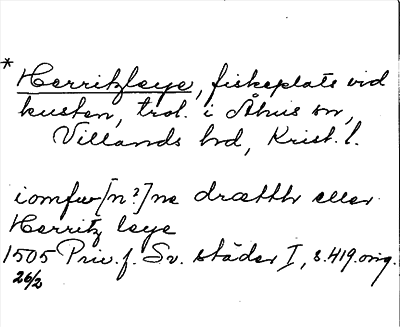 * Herritzleye, fiskeplats vid
kusten, trol. i Åhus sn,
Villands hd, Krist. l.
iomfrw[n?]ne drætthr eller
Herritz leye
1505 Priv. f. Sv. städer I, s. 419. orig.
26/2